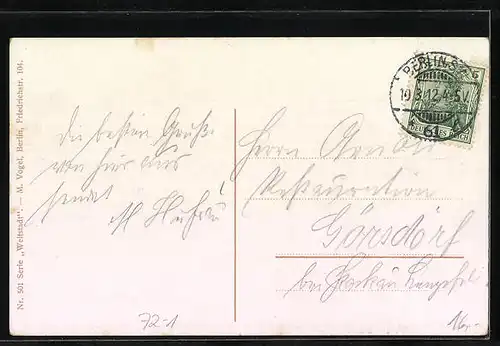 Nr. 501 Serie „Weltstadt". — M. Vogel, Berlin, Friedrichstr. 104.
BERLIN S.W.
19.3.12.4-5
61
DEUTSCHES REICH
Die besten Grüße
von hier aus
sendet
Herrn
Restauration
Görsdorf
bei
72-1
16,-